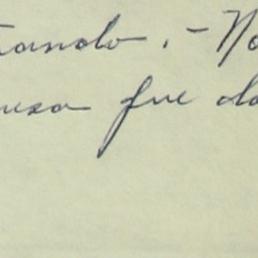 rando. - No
uesa fue da